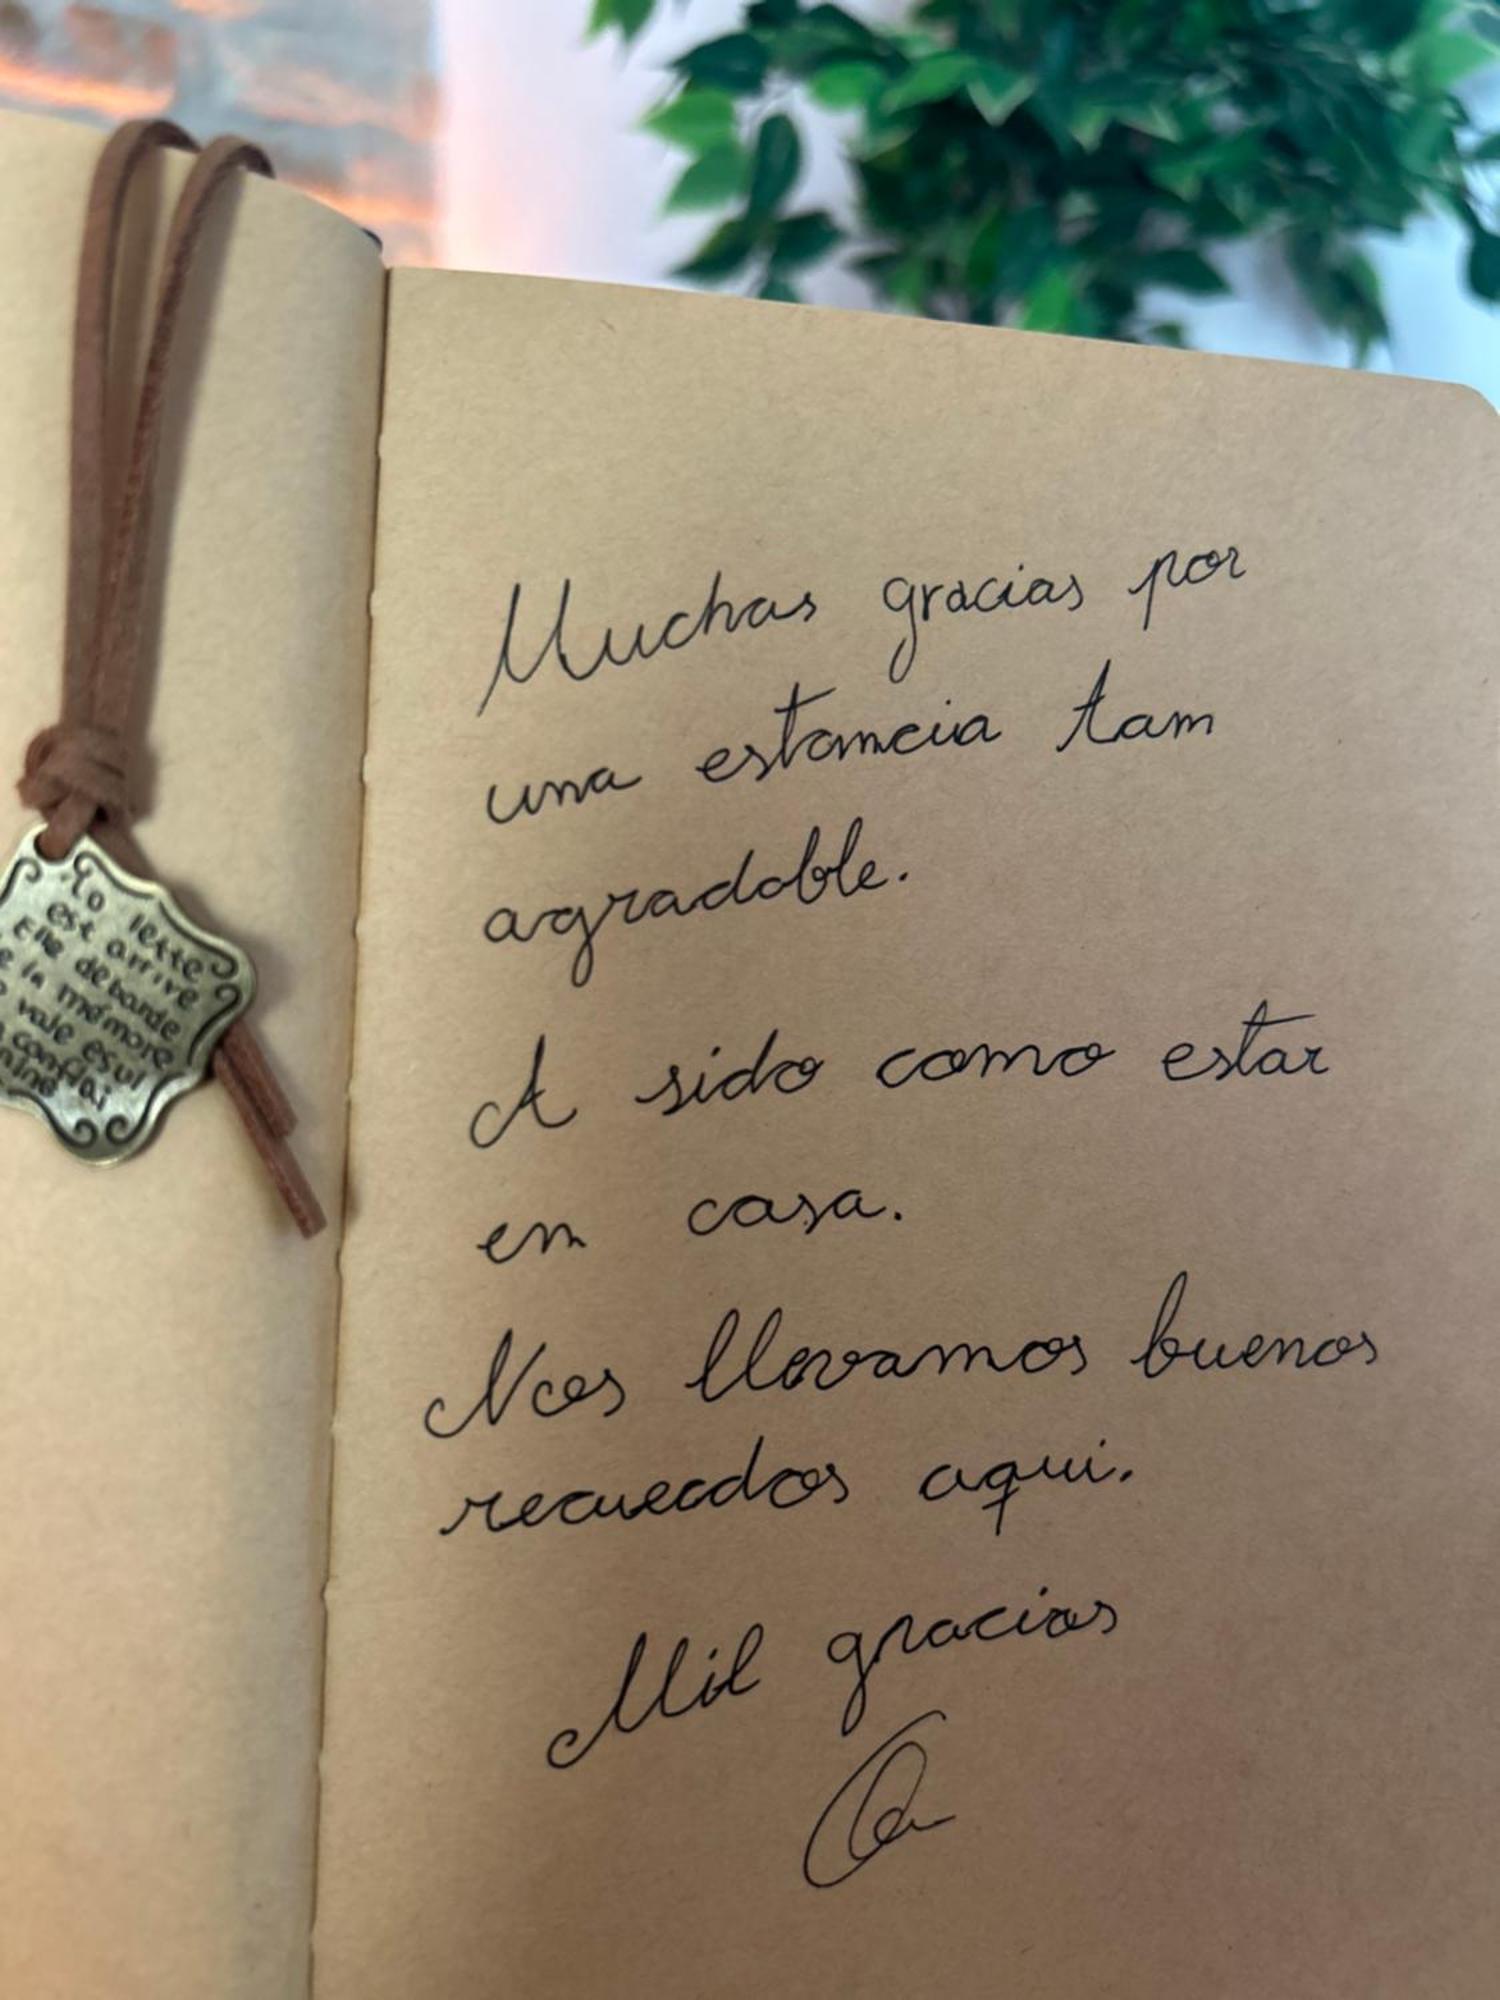 Yo lette
est arrive
Elle debarde
e la mémore
vale esul
confiai
Muchas gracias por
una estancia tam
agradable.
A sido como estar
en casa.
Nos llevamos buenos
recuerdos aqui.
Mil gracias